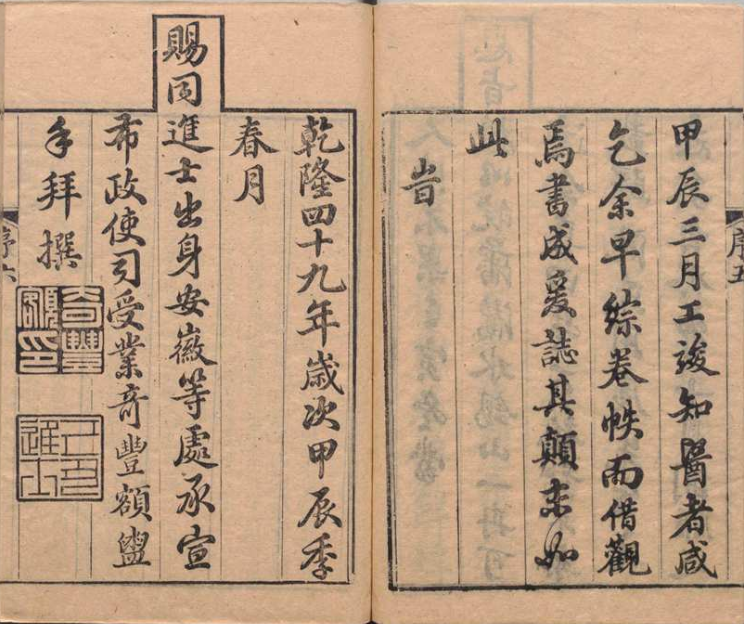 甲辰三月工竣知醫者咸
乞余早綜卷帙而借觀
焉書成爰誌其顛末如
此
旹
序五
乾隆四十九年歲次甲辰季
春月
賜同進士出身安徽等處承宣
布政使司受業奇豐額盥
手拜撰
奇豐額印
己丑進士
序六